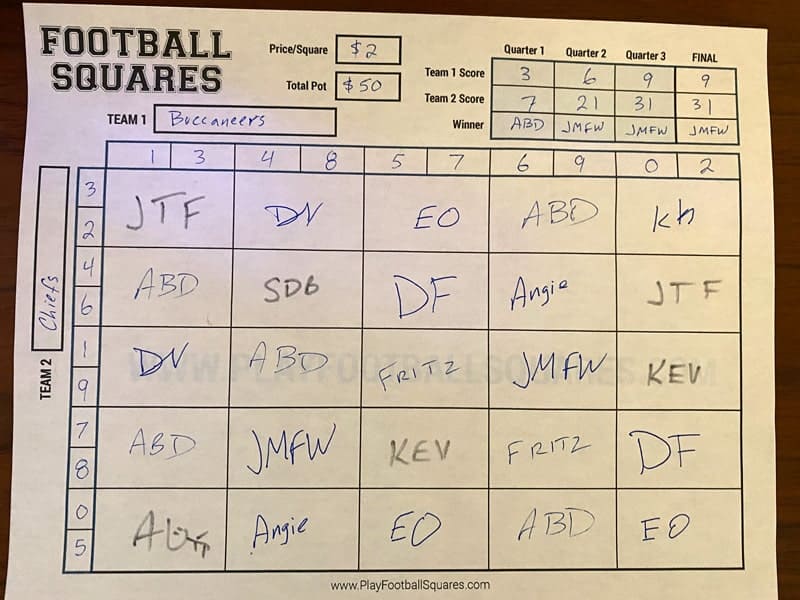 FOOTBALL
SQUARES
Price/Square $2
Total Pot $50
Quarter 1 Quarter 2 Quarter 3 FINAL
Team 1 Score 3 6 9 9
Team 2 Score 7 21 31 31
Winner ABD JMFW JMFW JMFW
TEAM 1 Buccaneers
TEAM 2 Chiefs
1 3 4 8 5 7 6 9 0 2
3
2
JTF DN EO ABD Kh
4
6
ABD SDB DF Angie JTF
1
9
DN ABD FRITZ JMFW KEV
7
8
ABD JMFW KEV FRITZ DF
0
5
Angie EO ABD EO
www.PlayFootballSquares.com